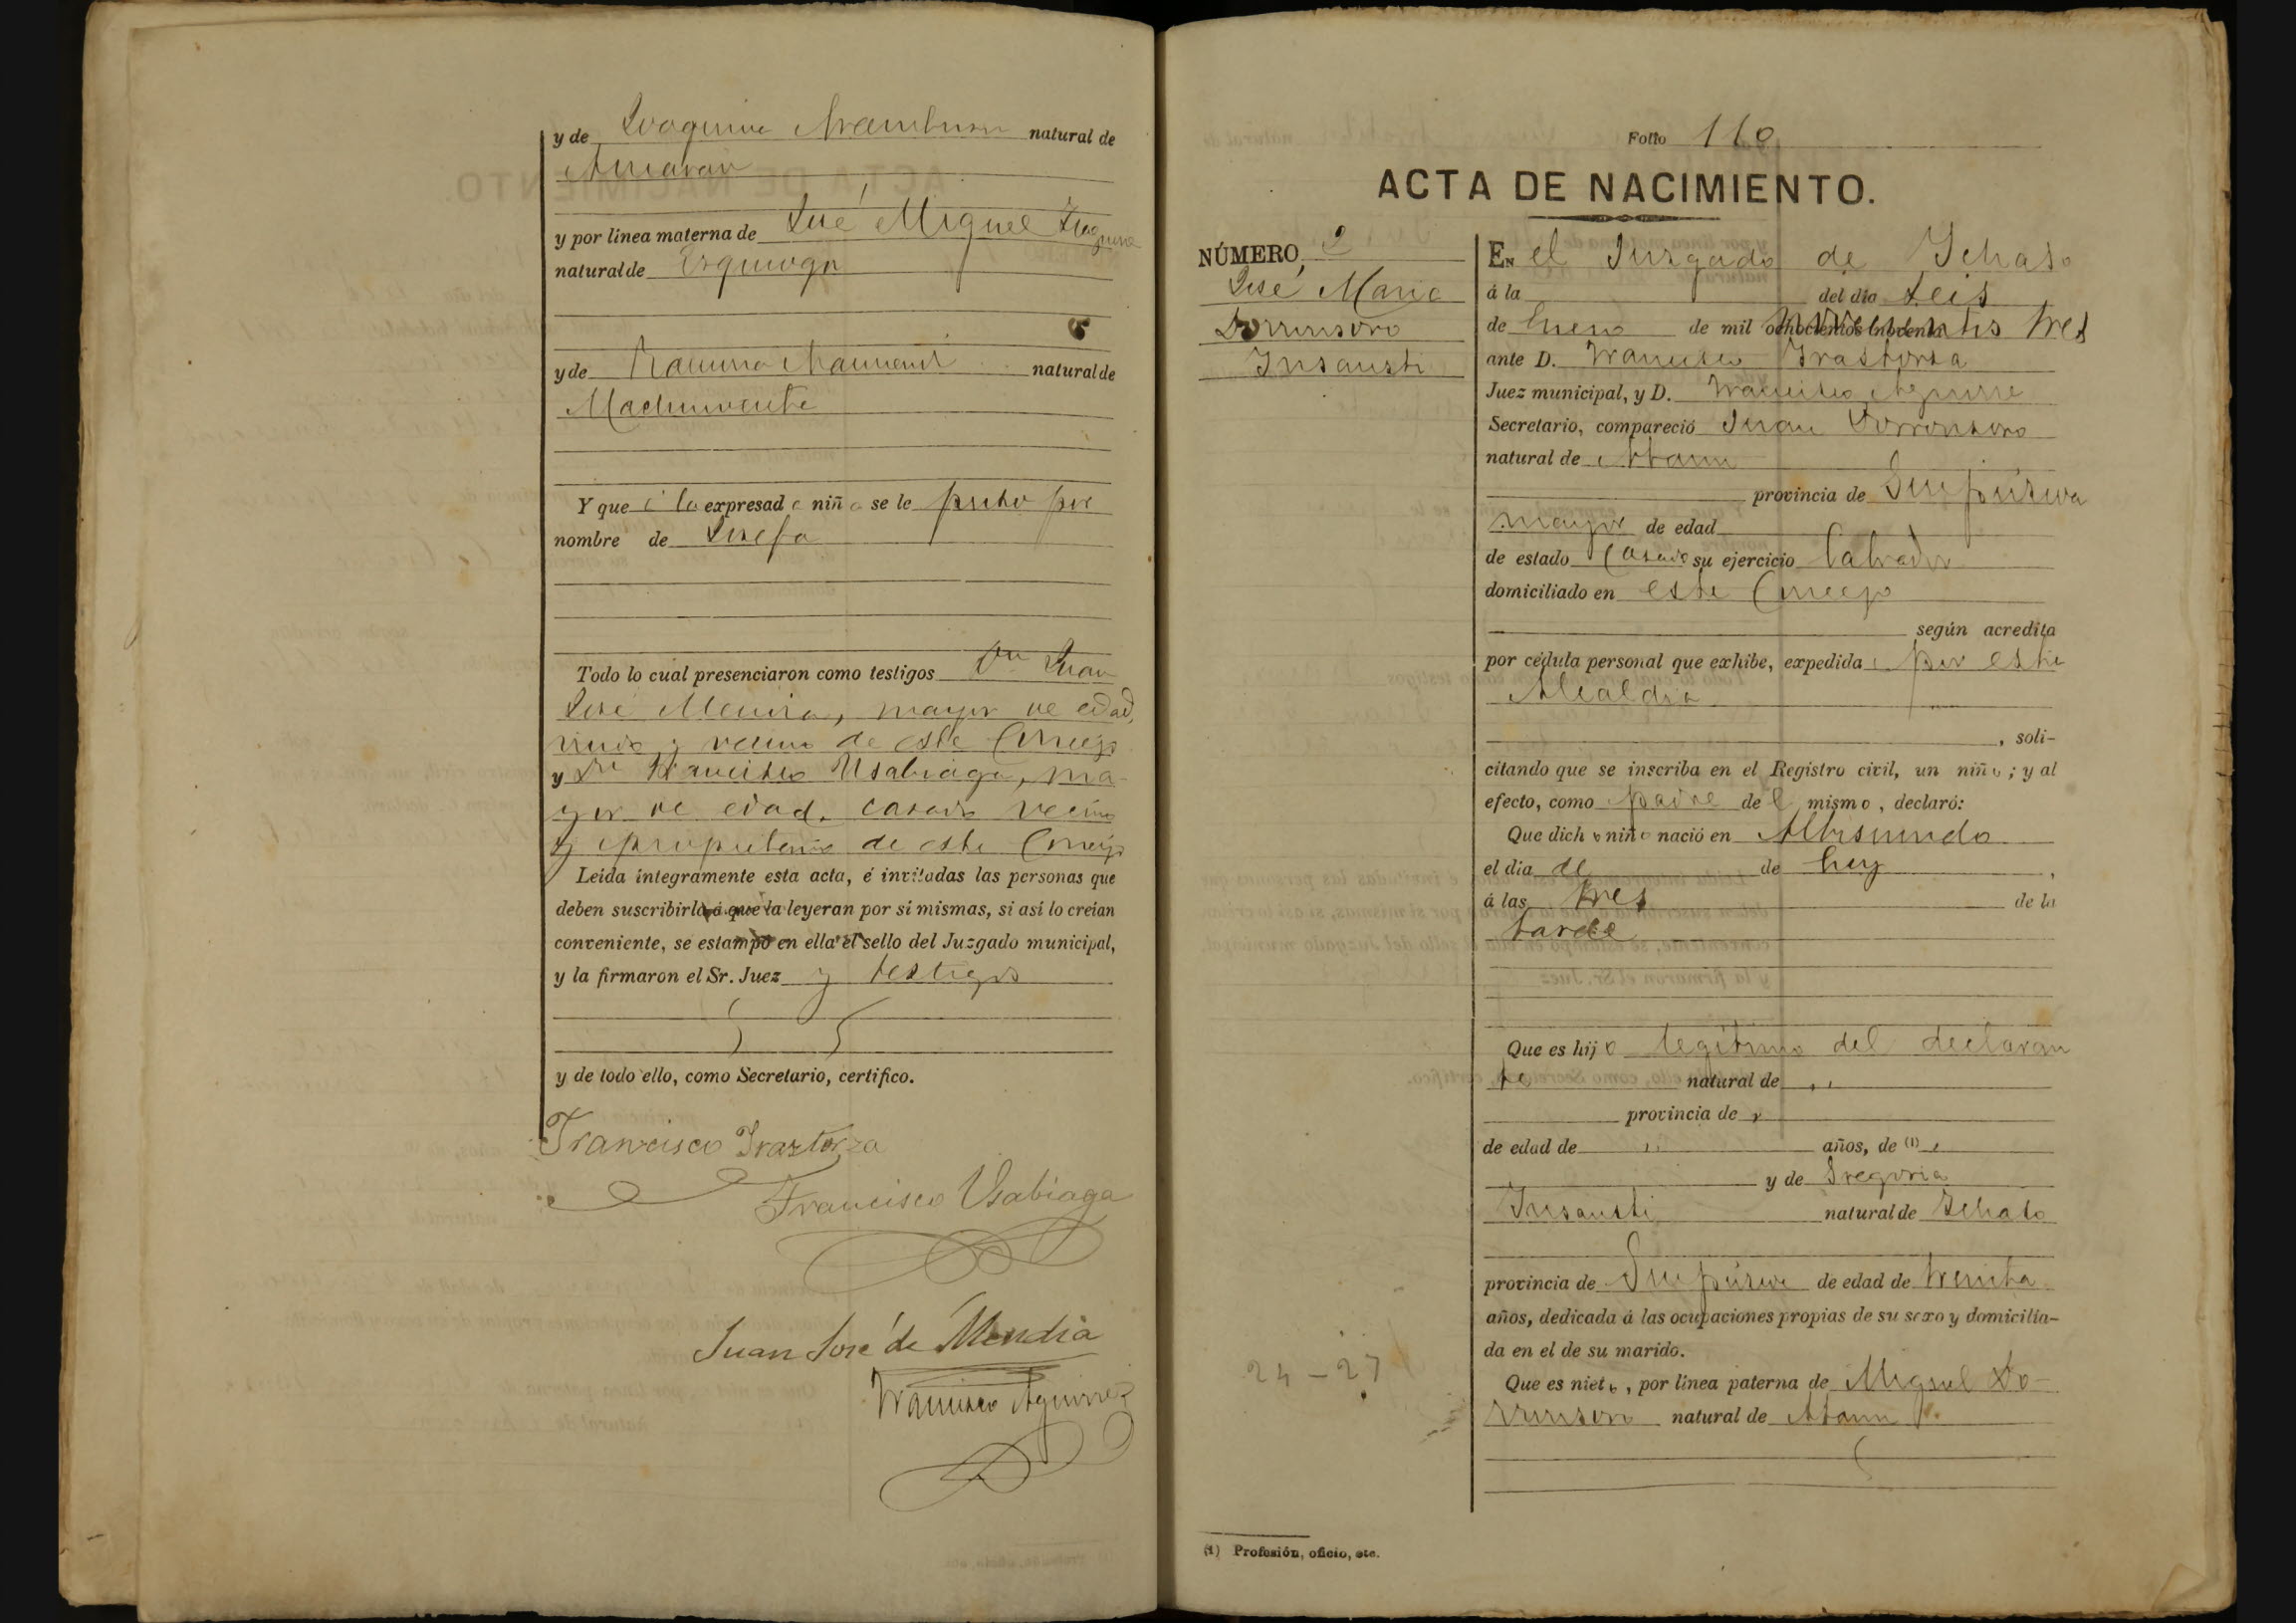 y de Joaquina Aramburu natural de
y por línea materna de José Miguel
natural de Ezquioga
y de Ramona natural de
Y que á la expresada niña se le puso por
nombre de Josefa
Todo lo cual presenciaron como testigos Dn Juan
José Mendia, mayor de edad,
viudo y vecino de este Concejo
y Dn Francisco Usabiaga, ma-
yor de edad, casado vecino
y propietario de este Concejo
Leída íntegramente esta acta, é invitadas las personas que
deben suscribirla á que la leyeran por sí mismas, si así lo creían
conveniente, se estampó en ella el sello del Juzgado municipal,
y la firmaron el Sr. Juez y testigos
y de todo ello, como Secretario, certifico.
Francisco Iraztorza
Francisco Usabiaga
Juan José de Mendia
Francisco Aguirre
Folio 110
ACTA DE NACIMIENTO.
NÚMERO 2
José Maria
Dorronsoro
Insausti
En el Juzgado de Ichaso
á la del día seis
de Enero de mil novecientos tres
ante D. Francisco Irastorza
Juez municipal, y D. Francisco Aguirre
Secretario, compareció Juan Dorronsoro
natural de Ataun
provincia de Guipúzcoa
mayor de edad
de estado casado su ejercicio labrador
domiciliado en este Concejo
según acredita
por cédula personal que exhibe, expedida por esta
Alcaldia
, soli-
citando que se inscriba en el Registro civil, un niño; y al
efecto, como padre del mismo, declaró:
Que dicho niño nació en
el día de de hoy,
á las tres de la
tarde
Que es hijo legítimo del declaran
te natural de ,,
provincia de ,
de edad de ,, años, de (1) ,
y de Gregoria
Insausti natural de Ichaso
provincia de Guipúzcoa de edad de treinta
años, dedicada á las ocupaciones propias de su sexo y domicilia-
da en el de su marido.
Que es nieto, por línea paterna de Miguel Do-
rronsoro natural de Ataun
24 - 27
(1) Profesión, oficio, etc.